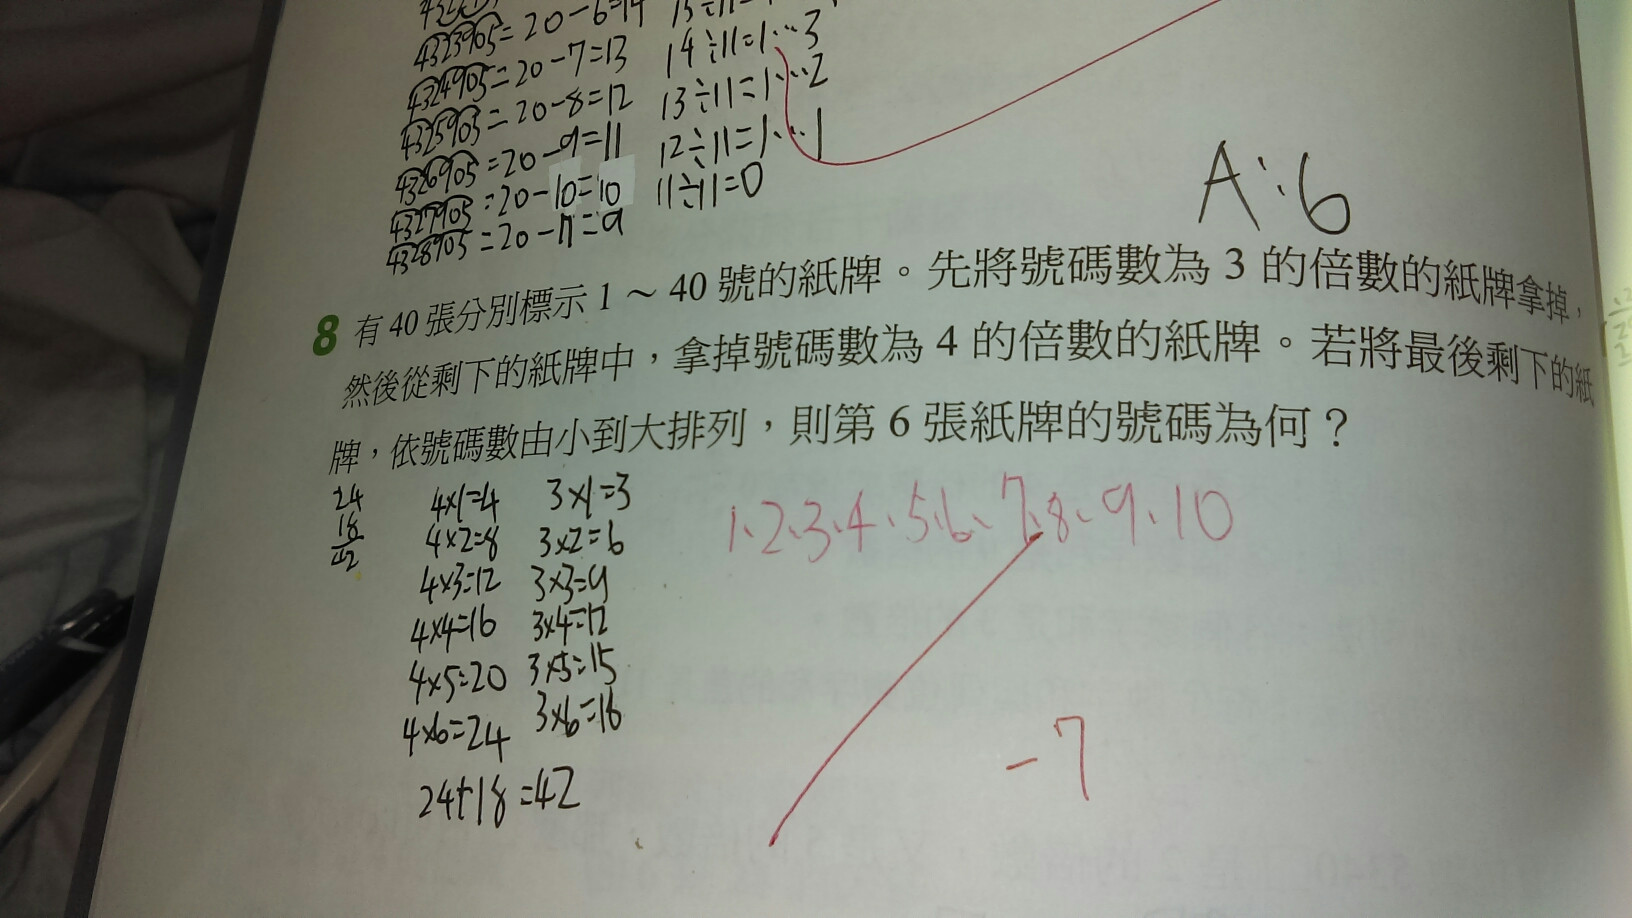 4323905=20-6=14
4324905=20-7=13 14÷11=1…3
4325905=20-8=12 13÷11=1…2
4326905=20-9=11 12÷11=1…1
4327905=20-10=10 11÷11=0
4328905=20-11=9
A:6
8 有40張分別標示1～40號的紙牌。先將號碼數為3的倍數的紙牌拿掉,
然後從剩下的紙牌中,拿掉號碼數為4的倍數的紙牌。若將最後剩下的紙
牌,依號碼數由小到大排列,則第6張紙牌的號碼為何?
24 4×1=4 3×1=3
18 4×2=8 3×2=6
42 4×3=12 3×3=9
4×4=16 3×4=12
4×5=20 3×5=15
4×6=24 3×6=18
24+18=42
1、2、3、4、5、6、7、8、9、10
-7